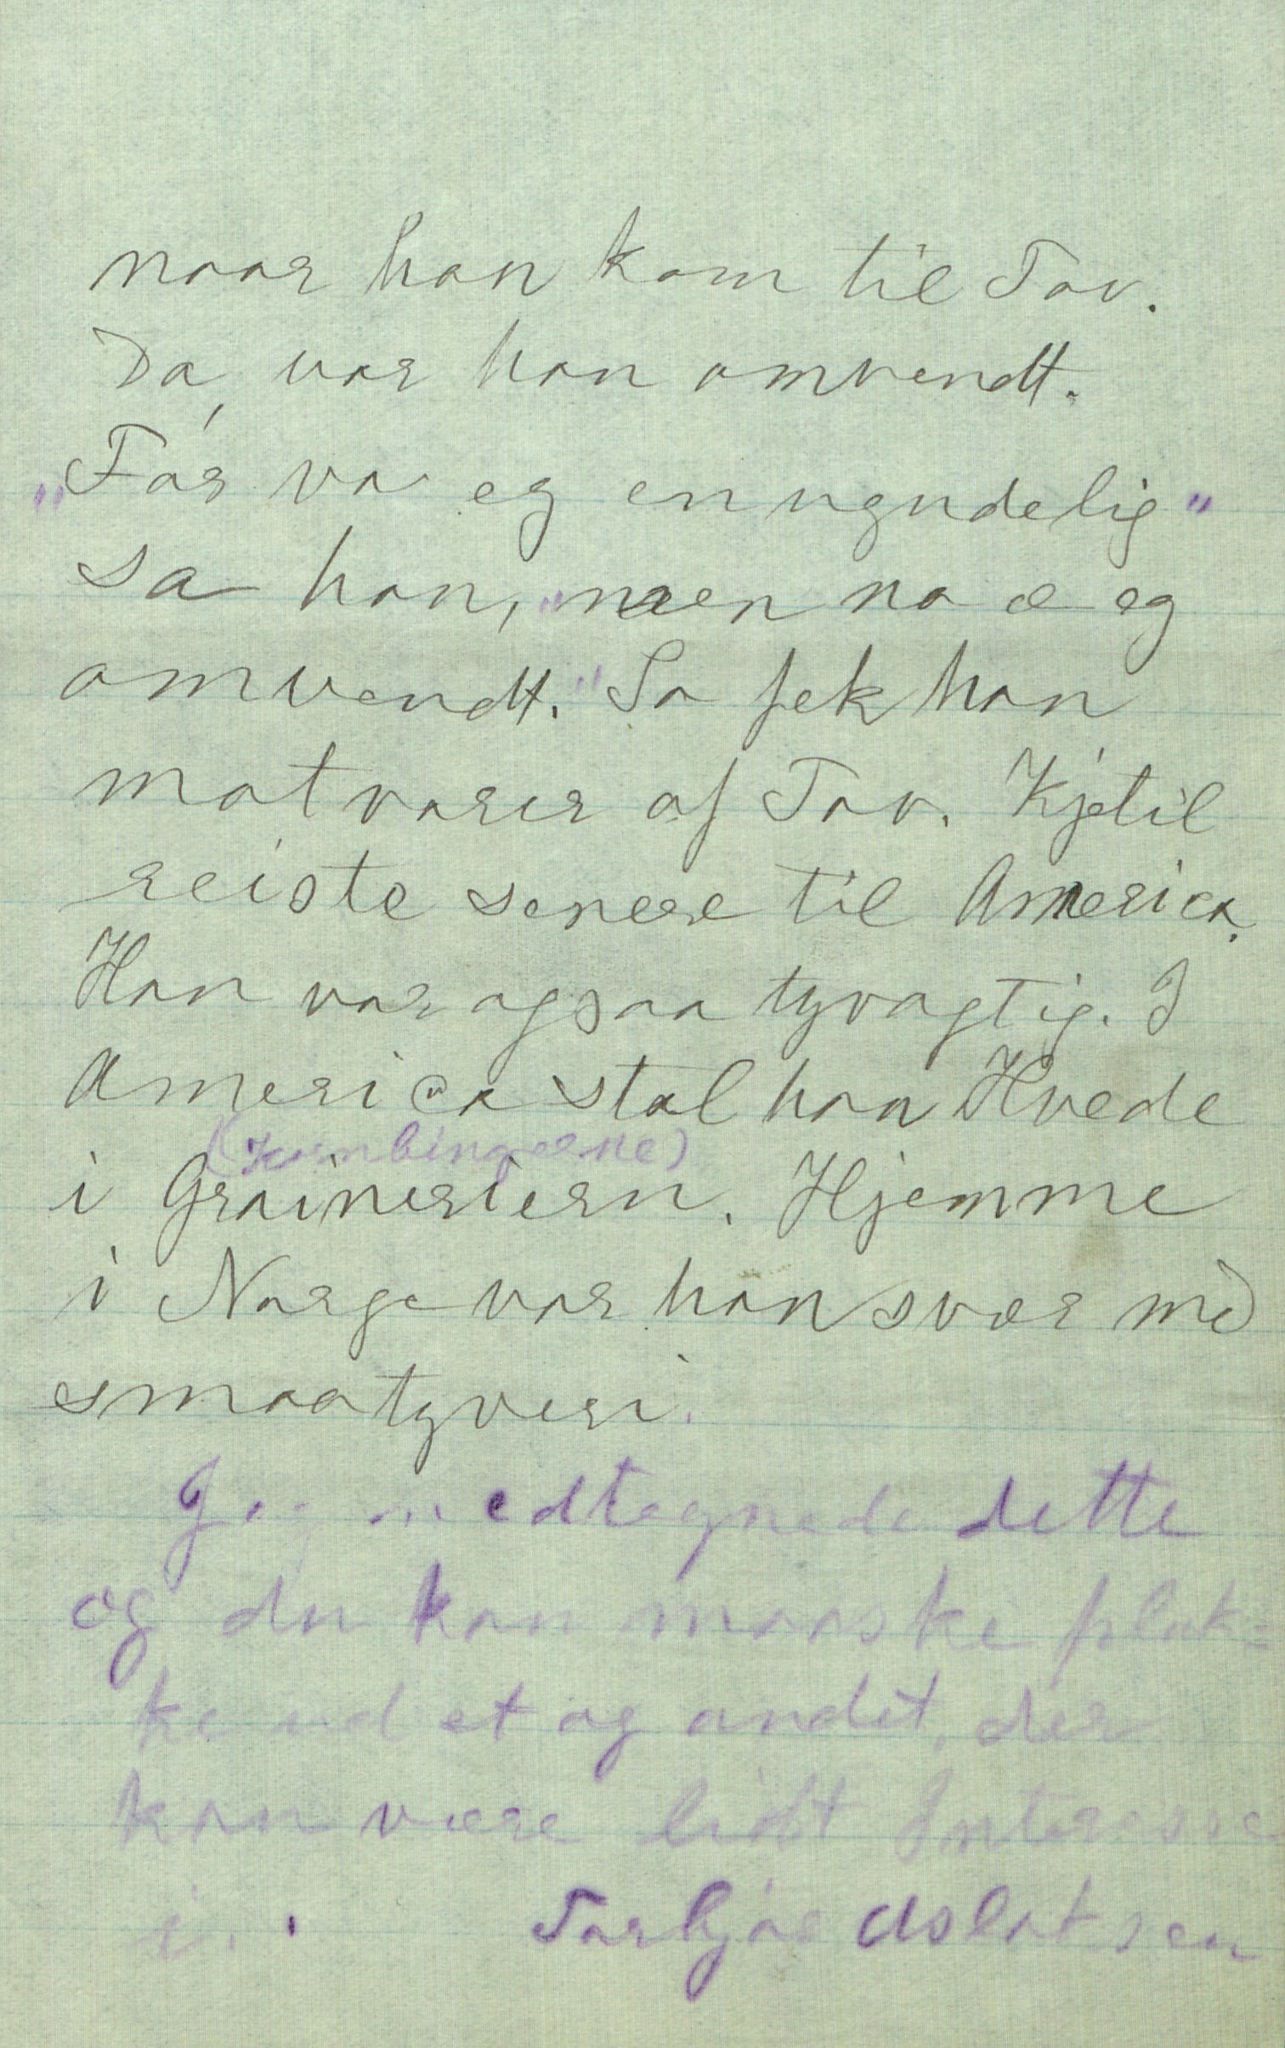 naar han kom til Tov.
Da, var han omvendt.
"Fór va eg en ugudelig"
sa han, "men no æ eg
omvendt." So fek han
matvarer af Tov. Kjétil
reiste senere til America.
Han var ogsaa tyvagtig. I
America stal han Hvede
(Kornbingerne)
i Graineriern. Hjemme
i Norge var han svær med
smaatyveri.
Jeg medtegnede dette
og du kan maaske pluk=
ke ud et og andet, der
kan være lidt Interesse
i. Aslaksen